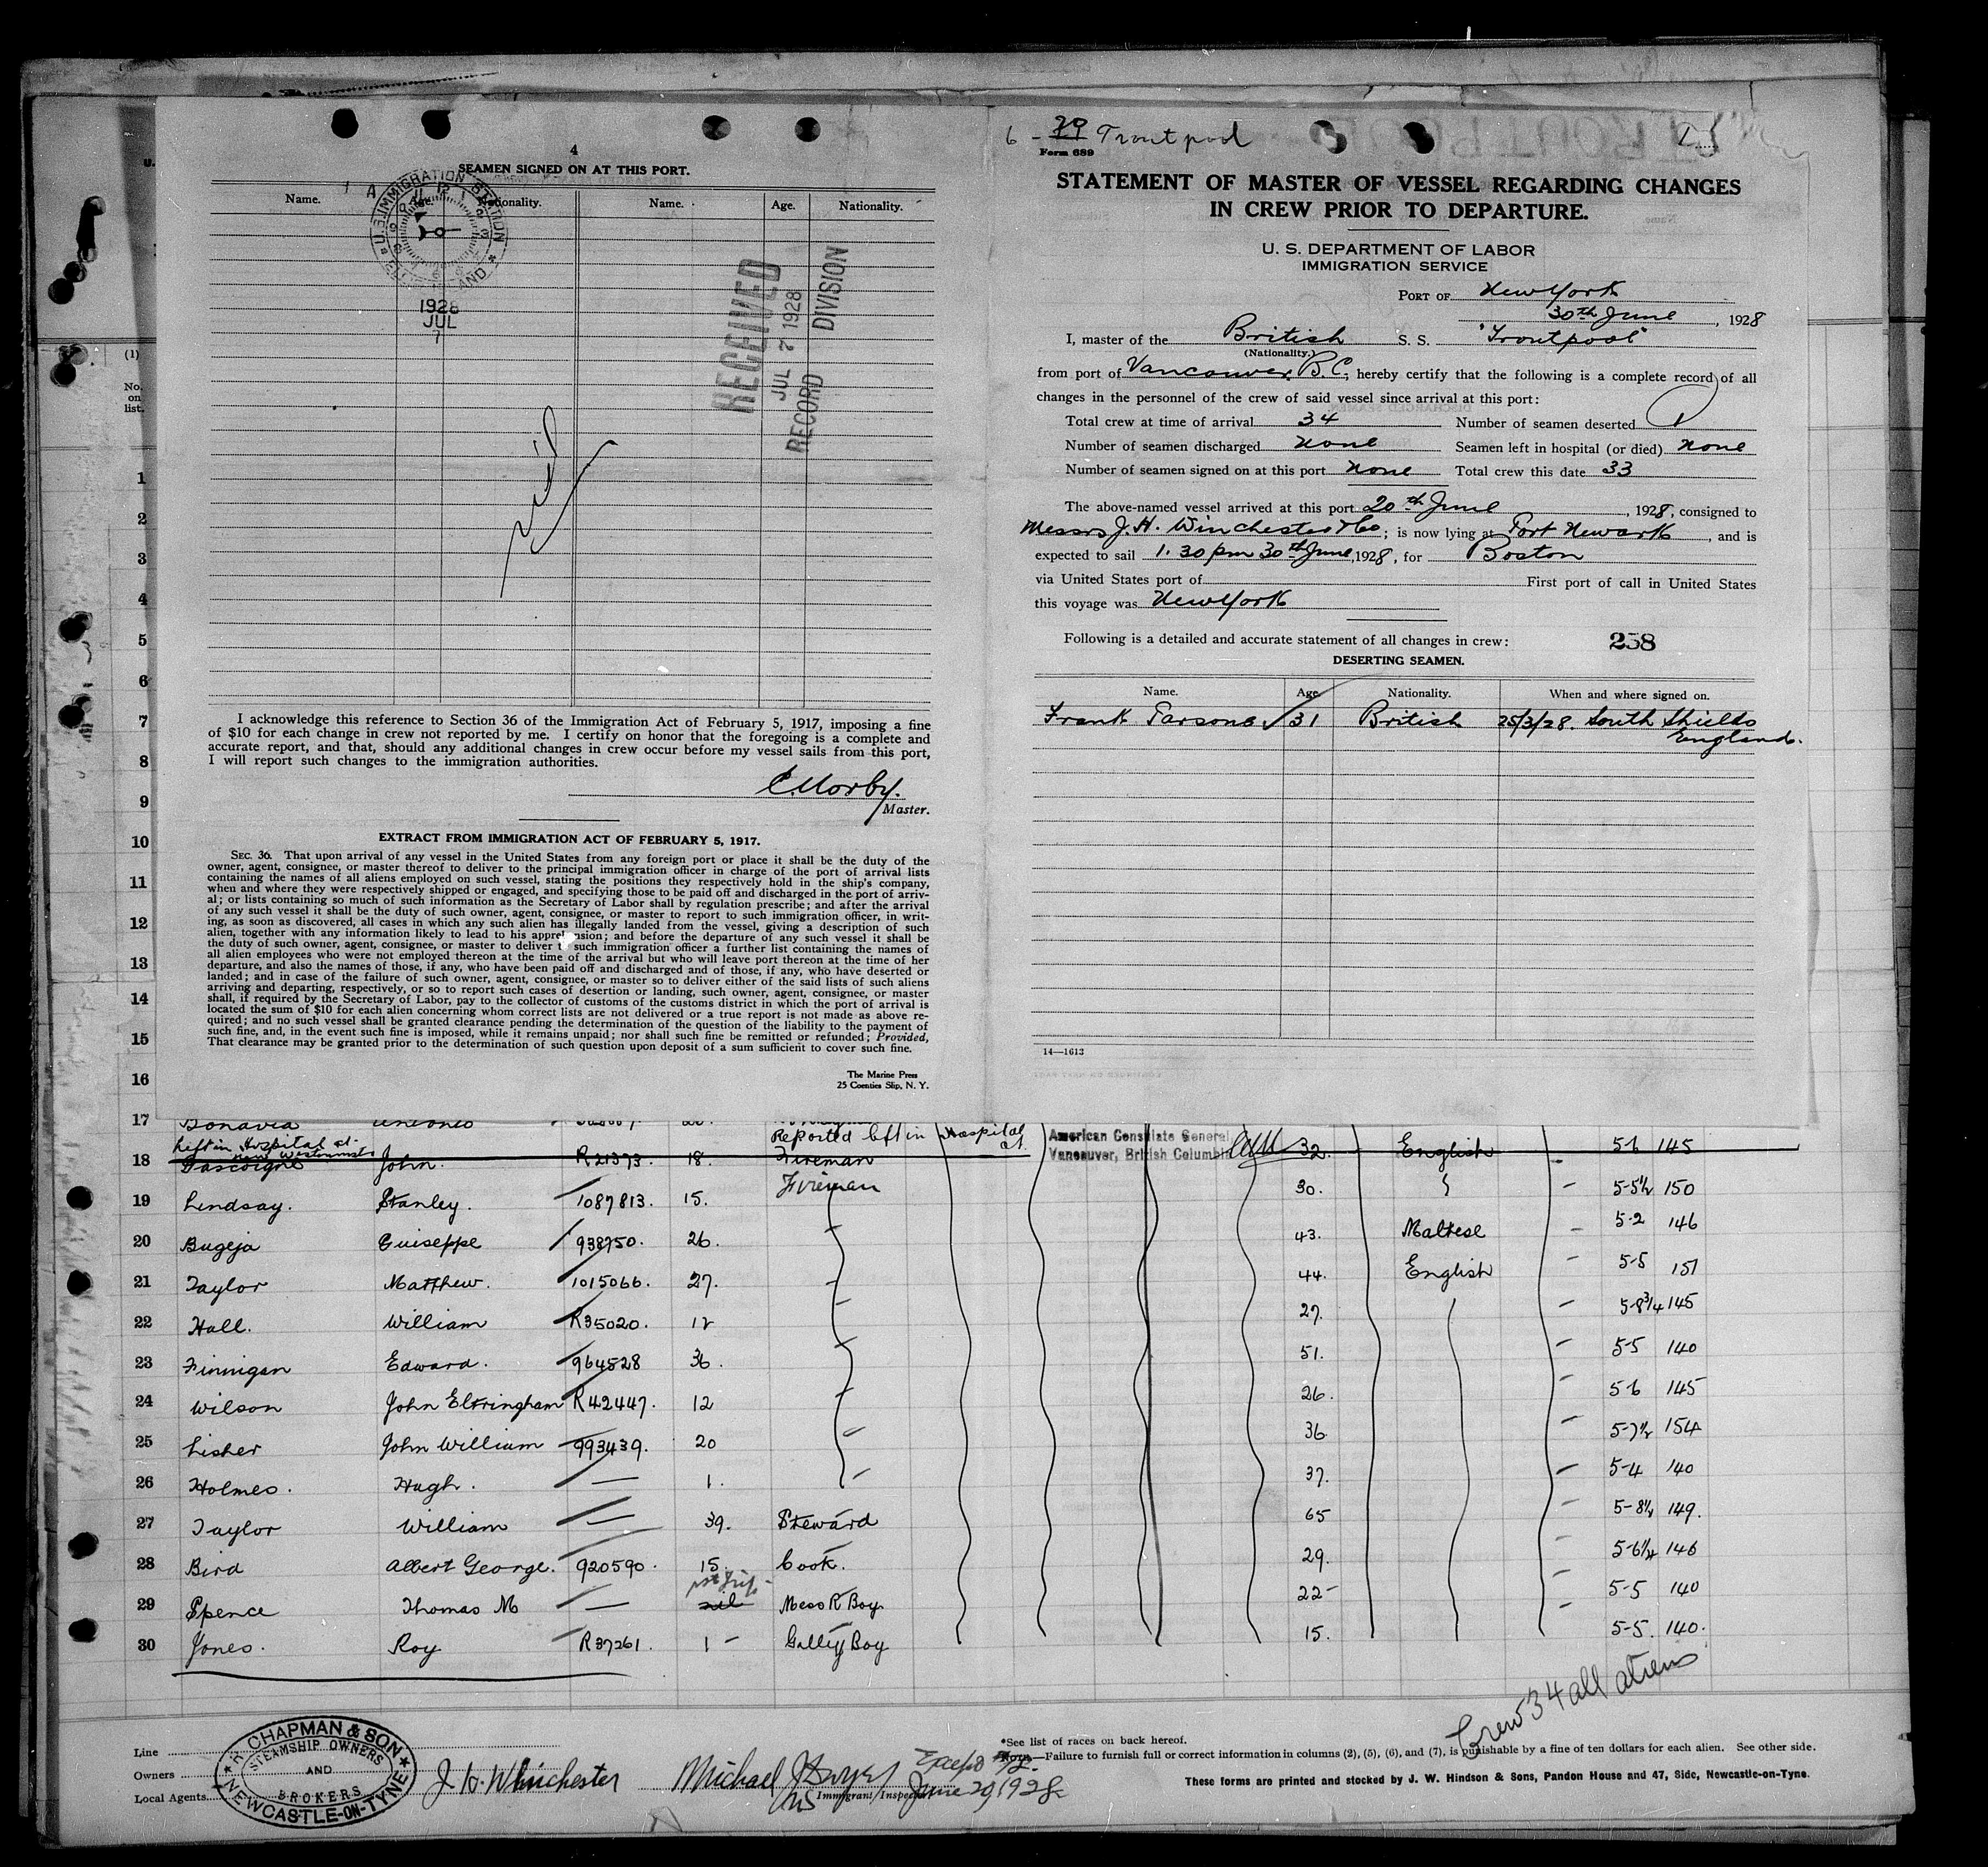 4
SEAMEN SIGNED ON AT THIS PORT.
Name. Age. Nationality. Name. Age. Nationality.
U.S. IMMIGRATION STATION
1928
JUL
7
RECEIVED
JUL 7 1928
RECORD DIVISION
nil
I acknowledge this reference to Section 36 of the Immigration Act of February 5, 1917, imposing a fine
of $10 for each change in crew not reported by me. I certify on honor that the foregoing is a complete and
accurate report, and that, should any additional changes in crew occur before my vessel sails from this port,
I will report such changes to the immigration authorities.
C. Morby.
Master.
EXTRACT FROM IMMIGRATION ACT OF FEBRUARY 5, 1917.
SEC. 36. That upon arrival of any vessel in the United States from any foreign port or place it shall be the duty of the
owner, agent, consignee, or master thereof to deliver to the principal immigration officer in charge of the port of arrival lists
containing the names of all aliens employed on such vessel, stating the positions they respectively hold in the ship's company,
when and where they were respectively shipped or engaged, and specifying those to be paid off and discharged in the port of arriv-
al; or lists containing so much of such information as the Secretary of Labor shall by regulation prescribe; and after the arrival
of any such vessel it shall be the duty of such owner, agent, consignee, or master to report to such immigration officer, in writ-
ing, as soon as discovered, all cases in which any such alien has illegally landed from the vessel, giving a description of such
alien, together with any information likely to lead to his apprehension; and before the departure of any such vessel it shall be
the duty of such owner, agent, consignee, or master to deliver to such immigration officer a further list containing the names of
all alien employees who were not employed thereon at the time of the arrival but who will leave port thereon at the time of her
departure, and also the names of those, if any, who have been paid off and discharged and of those, if any, who have deserted or
landed; and in case of the failure of such owner, agent, consignee, or master so to deliver either of the said lists of such aliens
arriving and departing, respectively, or so to report such cases of desertion or landing, such owner, agent, consignee, or master
shall, if required by the Secretary of Labor, pay to the collector of customs of the customs district in which the port of arrival is
located the sum of $10 for each alien concerning whom correct lists are not delivered or a true report is not made as above re-
quired; and no such vessel shall be granted clearance pending the determination of the question of the liability to the payment of
such fine, and, in the event such fine is imposed, while it remains unpaid; nor shall such fine be remitted or refunded; Provided,
That clearance may be granted prior to the determination of such question upon deposit of a sum sufficient to cover such fine.
The Marine Press
25 Coenties Slip, N. Y.
6 - 29 Troutpool
Form 689
STATEMENT OF MASTER OF VESSEL REGARDING CHANGES
IN CREW PRIOR TO DEPARTURE.
U. S. DEPARTMENT OF LABOR
IMMIGRATION SERVICE
PORT OF New York
30th June, 1928
I, master of the British S. S. "Troutpool"
(Nationality.)
from port of Vancouver B.C., hereby certify that the following is a complete record of all
changes in the personnel of the crew of said vessel since arrival at this port:
Total crew at time of arrival 34 Number of seamen deserted 1
Number of seamen discharged None Seamen left in hospital (or died) None
Number of seamen signed on at this port None Total crew this date 33
The above-named vessel arrived at this port 20th June, 1928, consigned to
Messrs J. H. Winchester & Co; is now lying at Port Newark, and is
expected to sail 1.30 pm 30th June, 1928, for Boston
via United States port of First port of call in United States
this voyage was New York
Following is a detailed and accurate statement of all changes in crew: 258
DESERTING SEAMEN.
Name. Age. Nationality. When and where signed on.
Frank Parsons 31 British 25/3/28. South Shields
England.
14—1613
(1)
No.
on
list.
1
2
3
4
5
6
7
8
9
10
11
12
13
14
15
16
17 Bonavia
Left in Hospital at New Westminster Reported left in Hospital at. American Consulate General
18 Gascoigne John. R21373. 18. Fireman Vancouver, British Columbia 32. English 5-6 145
19 Lindsay. Stanley. 1087813. 15. Fireman 30. 5-5½ 150
20 Bugeja Guiseppe 938750. 26. 43. Maltese 5-2 146
21 Taylor Matthew. 1015066. 27. 44. English 5-5 151
22 Hall. William R35020. 12 27. 5-8¾ 145
23 Finnigan Edward. 964528 36. 51. 5-5 140
24 Wilson John Eltringham R42447. 12 26. 5-6 145
25 Lisher John William 993439. 20 36 5-7½ 154
26 Holmes. Hugh. — 1. 37. 5-4 140
27 Taylor William — 39. Steward 65 5-8½ 149.
28 Bird Albert George. 920590. 15. Cook. 29. 5-6¼ 146
1st Trip
29 Spence Thomas M — nil Mess R Boy 22 5-5 140
30 Jones. Roy R37261. 1 Galley Boy 15. 5-5. 140.
Crew 34 all aliens
Line
Owners
Local Agents
R. CHAPMAN & SON
STEAMSHIP OWNERS
AND
BROKERS
NEWCASTLE-ON-TYNE
J. H. Winchester
Michael J.
Immigrant Inspector
June 20, 1928
*See list of races on back hereof.
NOTE.—Failure to furnish full or correct information in columns (2), (5), (6), and (7), is punishable by a fine of ten dollars for each alien. See other side.
These forms are printed and stocked by J. W. Hindson & Sons, Pandon House and 47, Side, Newcastle-on-Tyne.